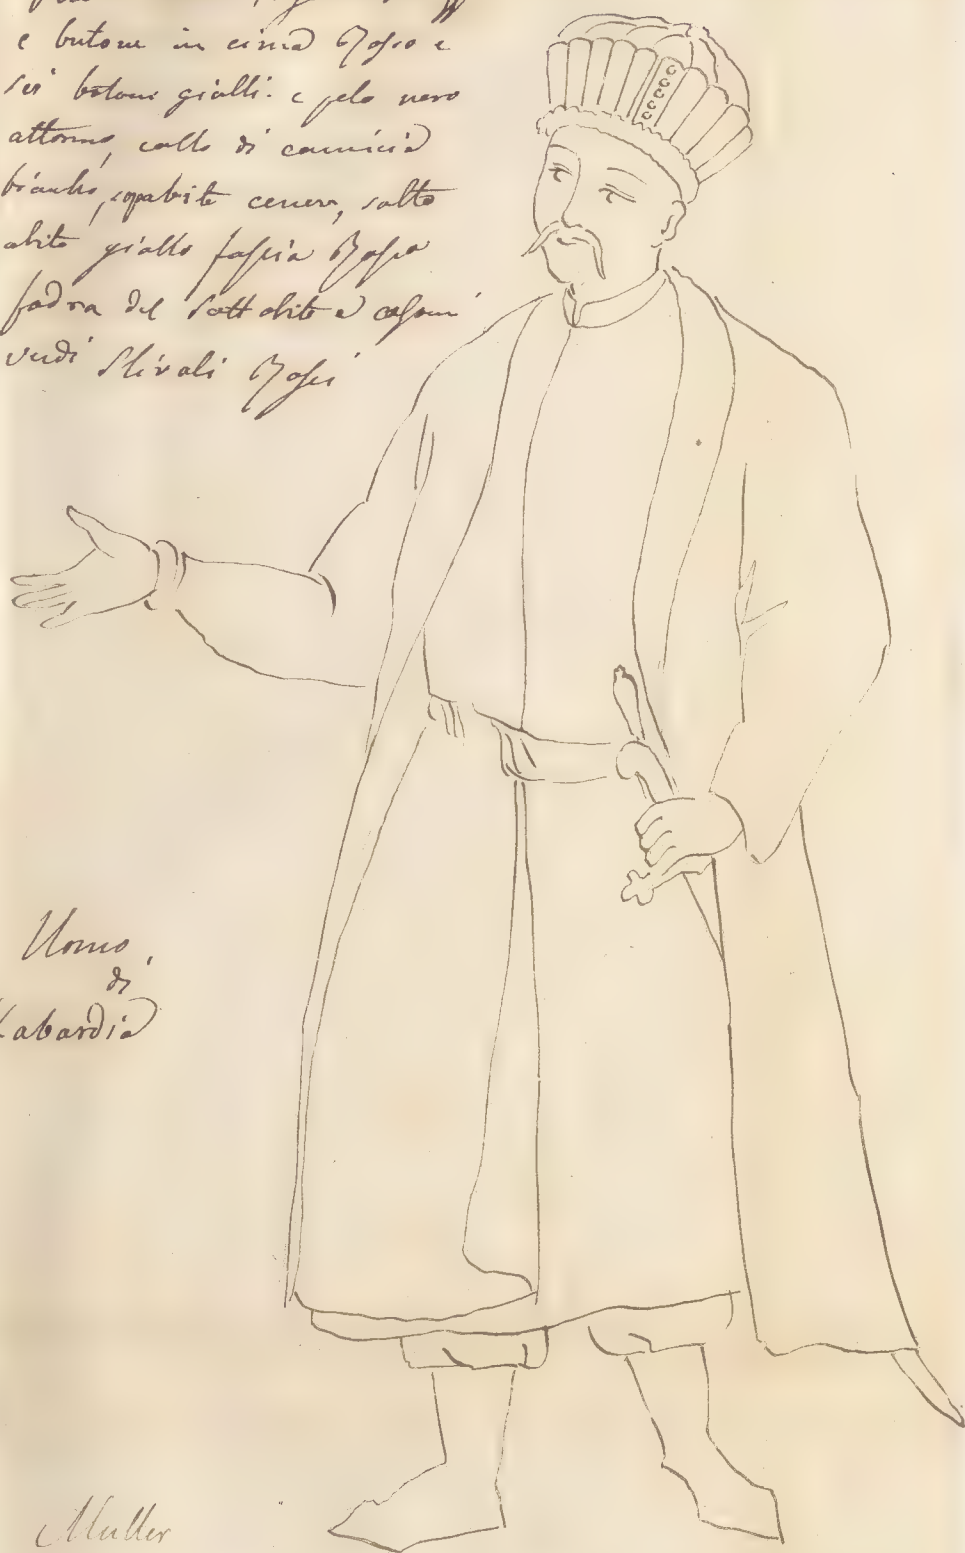 e botone in cima Rosso e
sei botoni gialli. e pelo nero
attorno, collo di camicia
biancho, sopabito cenere, sotto
abito giallo fascia Rossa
fodra del sott abito e calsoni
verdi Stivali Rossi
Uomo
di
Kabardia
Muller